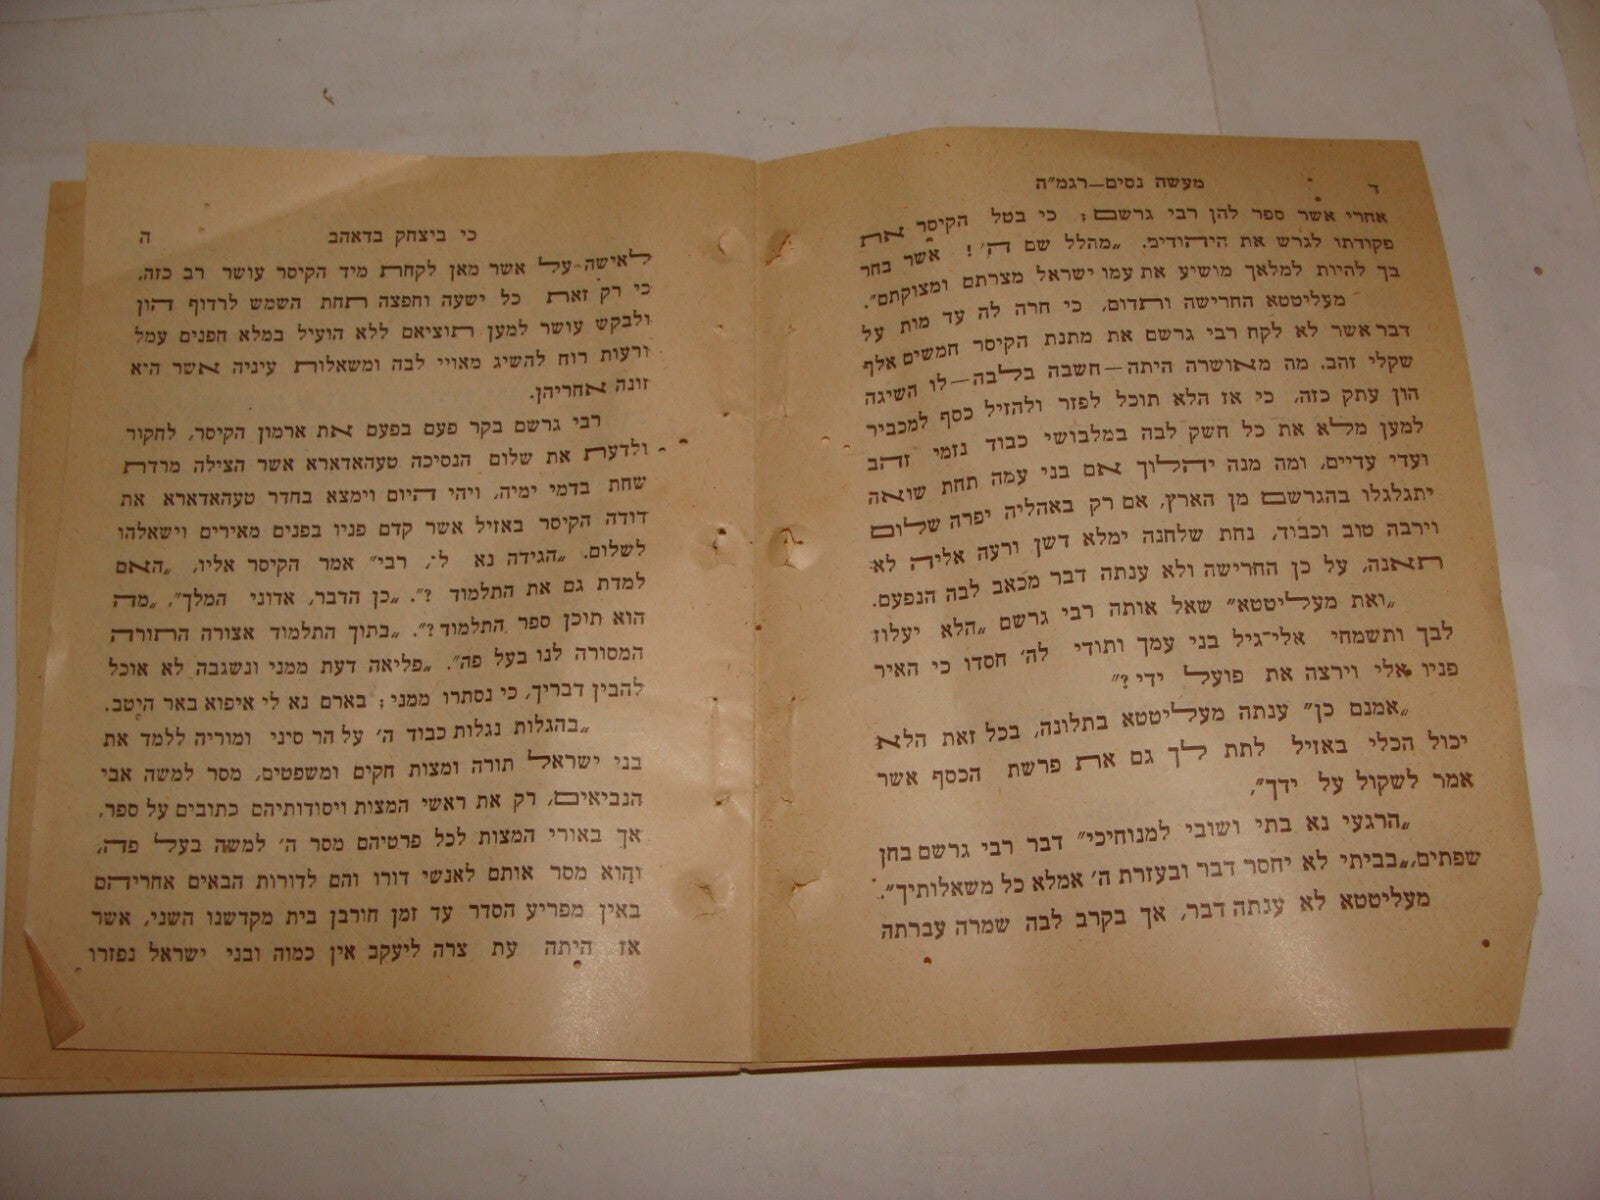 ד
מעשה נסים—רגמ״ה
אחרי אשר ספר להן רבי גרשם; כי בטל הקיסר את
פקודתו לגרש את היהודים. „מהלל שם ה׳! אשר בחר
בך להיות למלאך מושיע את עמו ישראל מצרתם ומצוקתם״.
מעליטטא החרישה ותדום, כי חרה לה עד מות על
דבר אשר לא לקח רבי גרשם את מתנת הקיסר חמשים אלף
שקלי זהב. מה מאושרה היתה—חשבה בלבה—לו השיגה
הון עתק כזה, כי אז הלא תוכל לפזר ולהזיל כסף למכביר
למען מלא את כל חשק לבה במלבושי כבוד נזמי זהב
ועדי עדיים, ומה מנה יהלוך אם בני עמה תחת שואה
יתגלגלו בהגרשם מן הארץ, אם רק באהליה יפרה שלום
וירבה טוב וכבוד, נחת שלחנה ימלא דשן ורעה אליה לא
תאנה, על כן החרישה ולא ענתה דבר מכאב לבה הנפעם.
„ואת מעליטטא״ שאל אותה רבי גרשם „הלא יעלוז
לבך ותשמחי אלי־גיל בני עמך ותודי לה׳ חסדו כי האיר
פניו אלי וירצה את פועל ידי?״
„אמנם כן״ ענתה מעליטטא בתלונה, בכל זאת הלא
יכול הכלי באזיל לתת לך גם את פרשת הכסף אשר
אמר לשקול על ידך״,
„הרגעי נא בתי ושובי למנוחיכי״ דבר רבי גרשם בחן
שפתים, „בביתי לא יחסר דבר ובעזרת ה׳ אמלא כל משאלותיך״.
מעליטטא לא ענתה דבר, אך בקרב לבה שמרה עברתה
כי ביצחק בדאהב
ה
לאישה על אשר מאן לקחת מיד הקיסר עושר רב כזה,
כי רק זאת כל ישעה וחפצה תחת השמש לרדוף הון
ולבקש עושר למען תוציאם ללא הועיל במלא חפנים עמל
ורעות רוח להשיג מאויי לבה ומשאלות עיניה אשר היא
זונה אחריהן.
רבי גרשם בקר פעם בפעם את ארמון הקיסר, לחקור
ולדעת את שלום הנסיכה טעהאדארא אשר הצילה מרדת
שחת בדמי ימיה, ויהי היום וימצא בחדר טעהאדארא את
דודה הקיסר באזיל אשר קדם פניו בפנים מאירים וישאלהו
לשלום. „הגידה נא לי, רבי״ אמר הקיסר אליו, „האם
למדת גם את התלמוד?״. „כן הדבר, אדוני המלך״, „מה
הוא תוכן ספר התלמוד?״. „בתוך התלמוד אצורה התורה
המסורה לנו בעל פה״. „פליאה דעת ממני ונשגבה לא אוכל
להבין דבריך, כי נסתרו ממני; בארם נא לי איפוא באר היטב.
„בהגלות נגלות כבוד ה׳ על הר סיני ומוריה ללמד את
בני ישראל תורה ומצות חקים ומשפטים, מסר למשה אבי
הנביאים, רק את ראשי המצות ויסודותיהם כתובים על ספר,
אך באורי המצות לכל פרטיהם מסר ה׳ למשה בעל פה,
והוא מסר אותם לאנשי דורו והם לדורות הבאים אחריהם
באין מפריע הסדר עד זמן חורבן בית מקדשנו השני, אשר
אז היתה עת צרה ליעקב אין כמוה ובני ישראל נפזרו